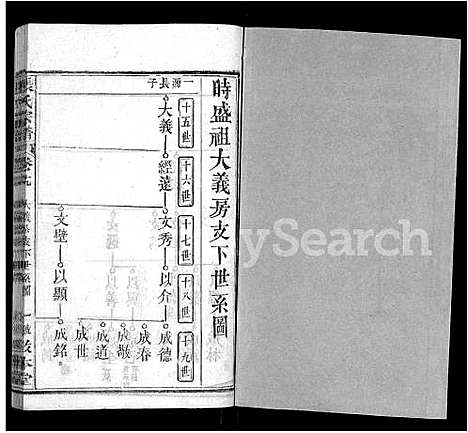 時盛祖大義房支下世系圖
十五世
十六世
十七世
十八世
十九世
一源長子
大義
經遠
文秀
以介
成德
成春
成敬
成道
文壁
以顯
成世
成銘
大義房支下世系圖
ySearch